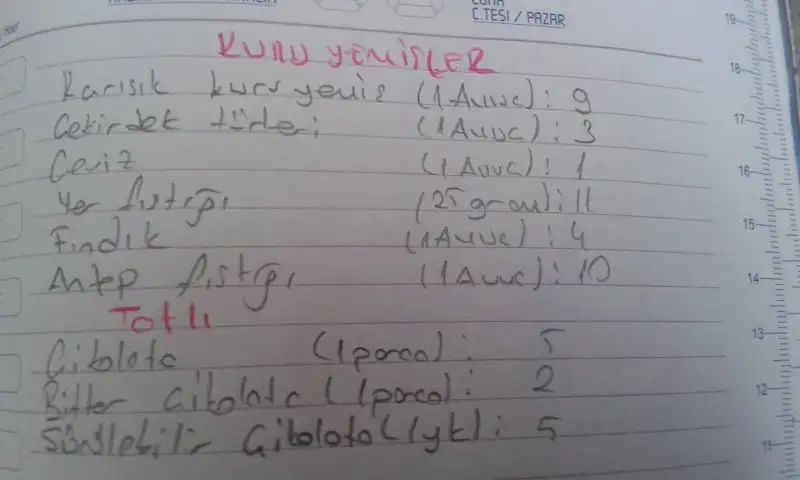 C.TESİ / PAZAR
KURU YEMİŞLER
Karışık kuru yemiş (1 Avuç): 9
Çekirdek türleri (1 Avuç): 3
Ceviz (1 Avuç): 1
Yer fıstığı (25 gram): 11
Fındık (1 Avuç): 4
Antep fıstığı (1 Avuç): 10
Tatlı
Çikolata (1 parça): 5
Bitter Çikolata (1 parça): 2
Sürülebilir Çikolata (1 yk): 5
19
18
17
16
15
14
13
12
11